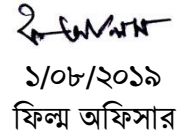 ১/০৮/২০১৯
ফিল্ম অফিসার